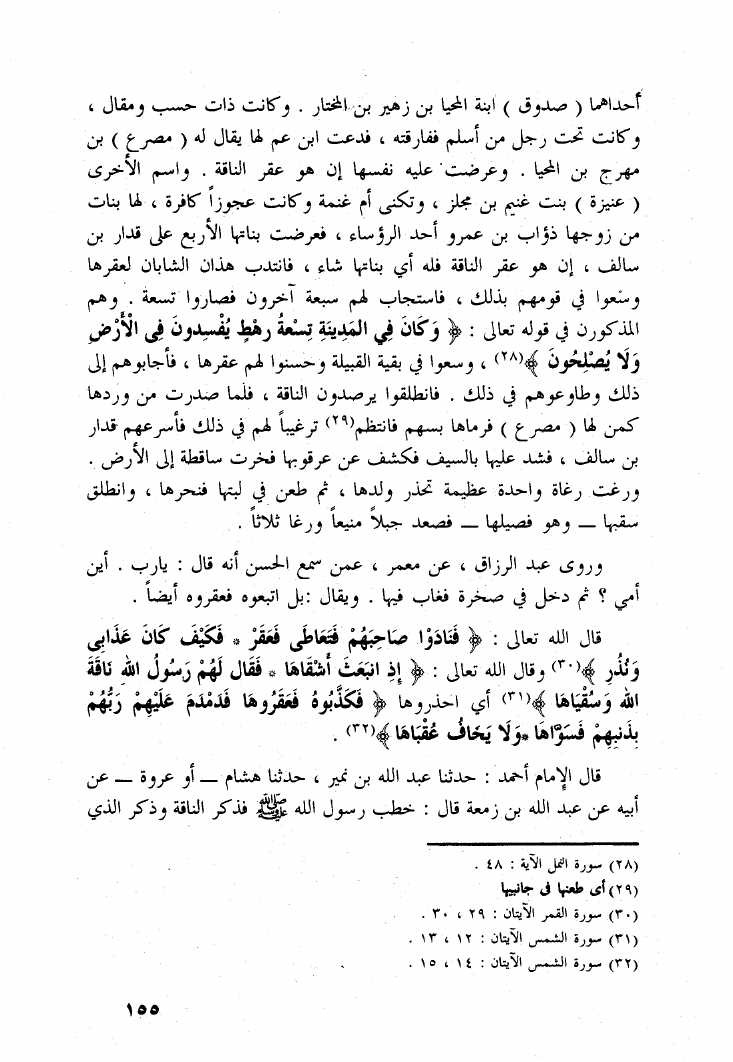 أحداهما ( صدوق ) ابنة المحيا بن زهير بن المختار . وكانت ذات حسب ومقال ،
وكانت تحت رجل من أسلم ففارقته ، فدعت ابن عم لها يقال له ( مصرع ) بن
مهرج بن المحيا . وعرضت عليه نفسها إن هو عقر الناقة . واسم الأخرى
( عنيزة ) بنت غنيم بن مجلز ، وتكنى أم غنمة وكانت عجوزاً كافرة ، لها بنات
من زوجها ذؤاب بن عمرو أحد الرؤساء ، فعرضت بناتها الأربع على قدار بن
سالف ، إن هو عقر الناقة فله أي بناتها شاء ، فانتدب هذان الشابان لعقرها
وسعوا في قومهم بذلك ، فاستجاب لهم سبعة آخرون فصاروا تسعة . وهم
المذكورن في قوله تعالى : ﴿ وَكَانَ فِي المَدِينَةِ تِسْعَةُ رهْطٍ يُفْسِدونَ فِى الْأَرْضِ
وَلَا يُصْلِحُونَ ﴾(٢٨) ، وسعوا في بقية القبيلة وحسنوا لهم عقرها ، فأجابوهم إلى
ذلك وطاوعوهم في ذلك . فانطلقوا يرصدون الناقة ، فلما صدرت من وردها
كمن لها ( مصرع ) فرماها بسهم فانتظم(٢٩) ترغيباً لهم في ذلك فأسرعهم قدار
بن سالف ، فشد عليها بالسيف فكشف عن عرقوبها فخرت ساقطة إلى الأرض .
ورغت رغاة واحدة عظيمة تحذر ولدها ، ثم طعن في لبتها فنحرها ، وانطلق
سقبها ــ وهو فصيلها ــ فصعد جبلاً منيعاً ورغا ثلاثاً .
وروى عبد الرزاق ، عن معمر ، عمن سمع الحسن أنه قال : يارب . أين
أمي ؟ ثم دخل في صخرة فغاب فيها . ويقال :بل اتبعوه فعقروه أيضاً .
قال الله تعالى : ﴿ فَنَادَوْا صَاحِبَهُمْ فَتَعَاطَى فَعَقَرْ * فَكَيْفَ كَانَ عَذَابِى
وَنُذُرِ ﴾(٣٠) وقال الله تعالى : ﴿ إِذِ انبَعَثَ أَشْقَاهَا * فَقَال لَهُمْ رَسُولُ الله نَاقَةَ
الله وَسُقْيَاهَا ﴾(٣١) أي احذروها ﴿ فَكَذَّبُوهُ فَعَقَرُوهَا فَدَمْدَمَ عَلَيْهِمْ رَبُّهُمْ
بِذَنبِهِمْ فَسَوَّاهَا *وَلَا يَخَافُ عُقْبَاهَا ﴾(٣٢) .
قال الإمام أحمد : حدثنا عبد الله بن نمير ، حدثنا هشام ــ أو عروة ــ عن
أبيه عن عبد الله بن زمعة قال : خطب رسول الله ﷺ فذكر الناقة وذكر الذي
(٢٨) سورة النمل الآية : ٤٨ .
(٢٩) أى طعنها فى جانبيها
(٣٠) سورة القمر الآيتان : ٢٩ ، ٣٠ .
(٣١) سورة الشمس الآيتان : ١٢ ، ١٣ .
(٣٢) سورة الشمس الآيتان : ١٤ ، ١٥ .
١٥٥